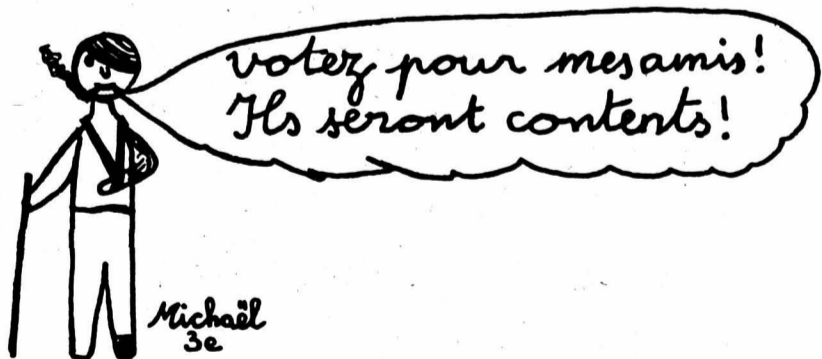 votez pour mes amis!
Ils seront contents!
Michaël
3e